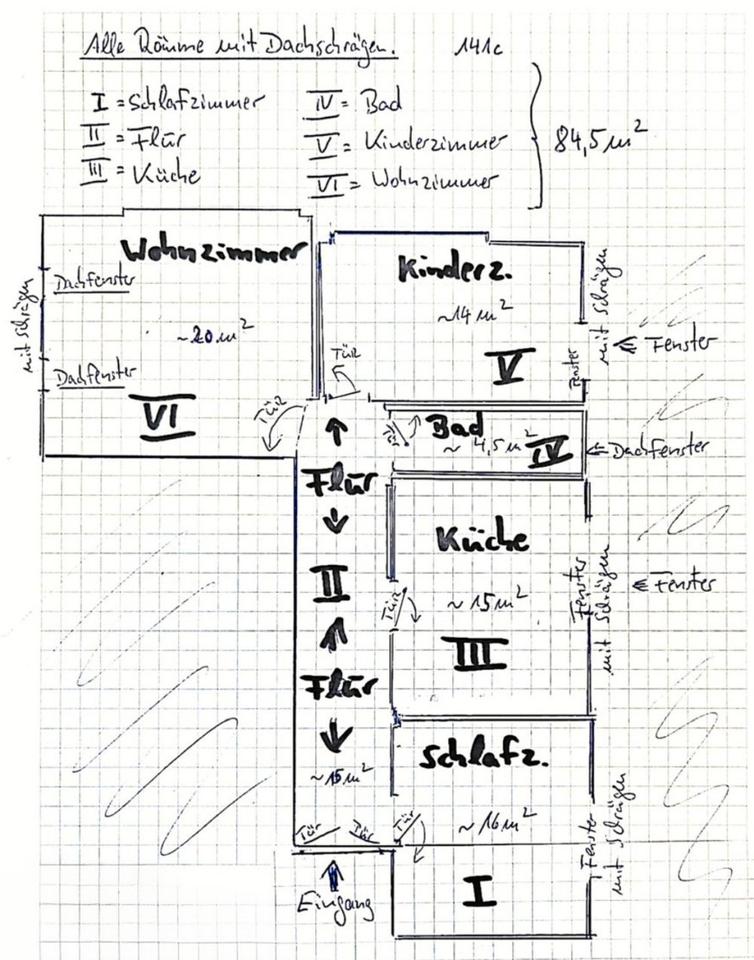 Alle Räume mit Dachschrägen.
141c
I = Schlafzimmer
II = Flür
III = Küche
IV = Bad
V = Kinderzimmer
VI = Wohnzimmer
84,5 m²
Wohnzimmer
Dachfenster
mit Schrägen
~20 m²
Dachfenster
VI
Tür
Kinderz.
~14 m²
V
Tür
Fenster
mit Schrägen
⇐ Fenster
Bad
~ 4,5 m²
IV
⇐ Dachfenster
Flür
II
Flür
~15 m²
Küche
~ 15 m²
III
Tür
Fenster
mit Schrägen
⇐ Fenster
Schlafz.
~ 16 m²
I
Tür
Tür
Tür
Fenster
mit Schrägen
Eingang